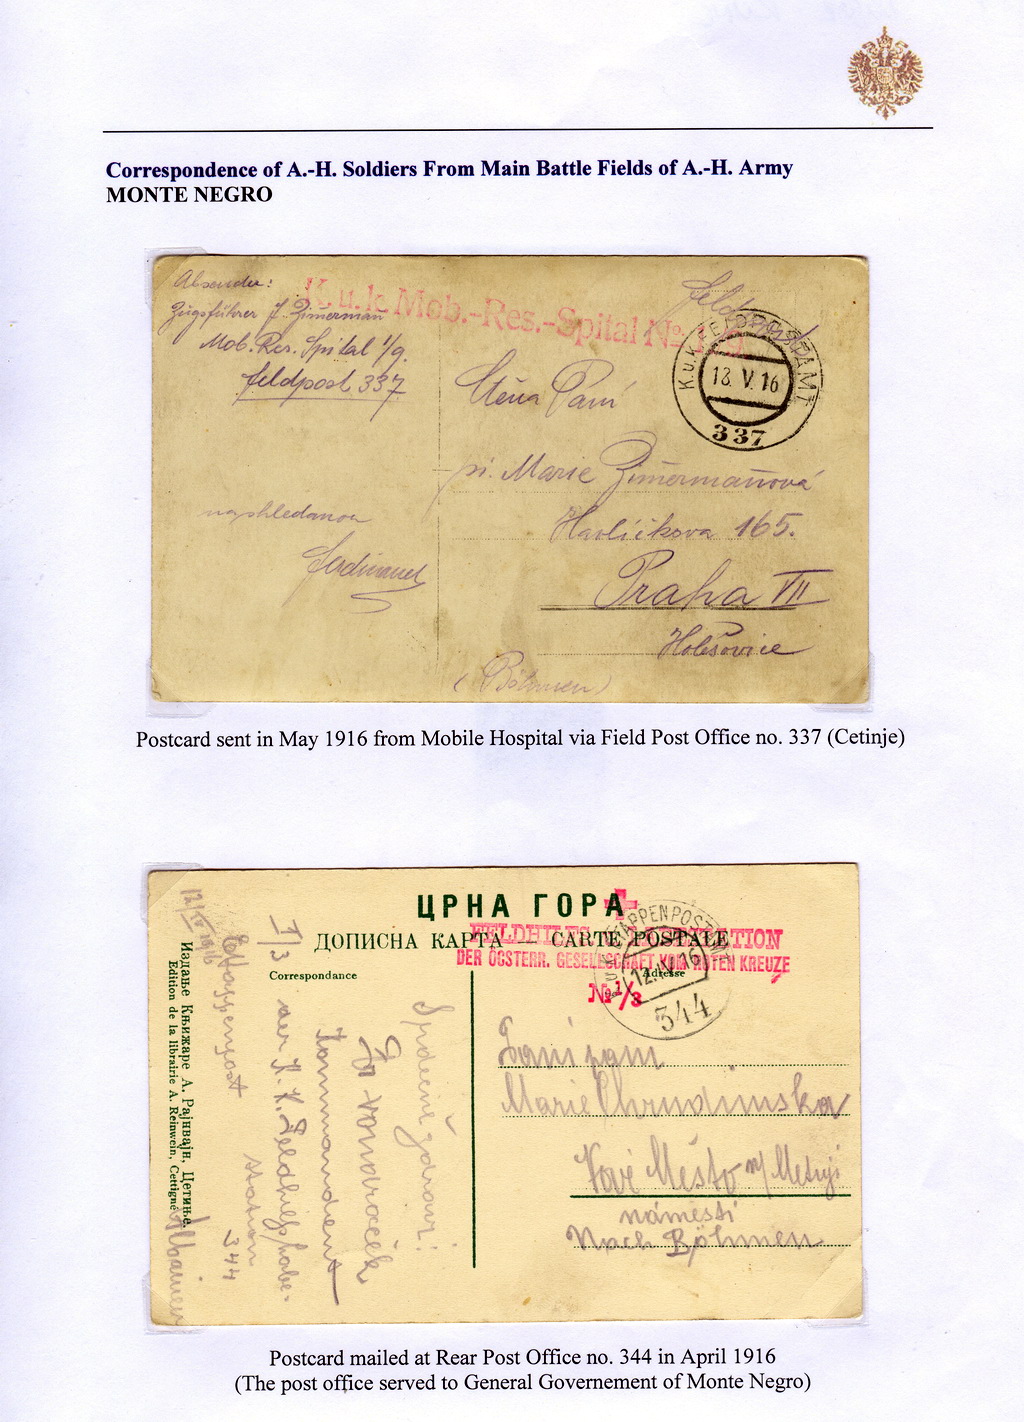 Correspondence of A.-H. Soldiers From Main Battle Fields of A.-H. Army
MONTE NEGRO
Absender:
Zugsführer J. Zimerman
Mob. Res. Spital 1/9.
feldpost 337
K.u.k. Mob.-Res.-Spital No. 1/9
feldpost
K.u.K. FELDPOSTAMT
18.V.16
337
Ctěná Paní
pí. Marie Zimermanová
Havlíčkova 165.
Praha VII
Holešovice
(Böhmen)
naskhledanou
Ferdinand
Postcard sent in May 1916 from Mobile Hospital via Field Post Office no. 337 (Cetinje)
ЦРНА ГОРА
ДОПИСНА КАРТА — CARTE POSTALE
FELDHILFS STATION
DER ÖSTERR. GESELLSCHAFT VOM ROTEN KREUZE
№ 1/3
ETAPPENPOSTAMT
12.IV.16
344
Correspondance
Adresse
Marie Chrudimska
Nové Město n/ Metují
náměstí
Nach Böhmen
Srdečné zdraví:
Kommandant
der K. K. Feldhilfs
station
344
I/3
Etappenpost
Albanien
Издање Књижаре А. Рајнвајн, Цетиње.
Edition de la librairie A. Reinwein, Cettigné
Postcard mailed at Rear Post Office no. 344 in April 1916
(The post office served to General Governement of Monte Negro)